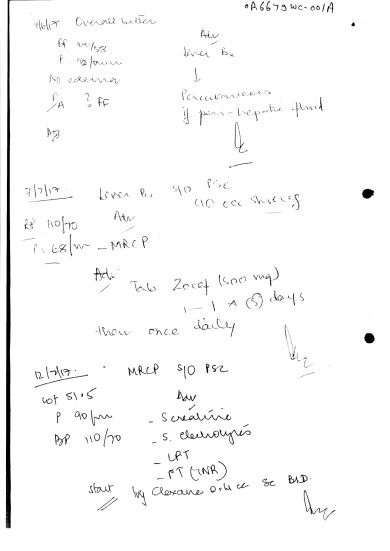 0A6679WC-001/A
Overall better
Adv
BP
Liver Bx
P 92/min
No edema
P/A ? FF
Percutaneous
if peri-hepatic fluid
7/7/17. Liver Bx S/O PSC
C/O occ
BP 110/70 Adv
P: 68/m - MRCP
Adv Tab Zocef (500 mg)
1 - 1 x (5) days
then once daily
12/7/17. MRCP S/O PSC
wt 51.5 Adv
P 90/m - S creatinine
BP 110/70 - S. Electrolytes
- LFT
- PT (INR)
start Inj Clexane 0.4 cc SC B.D.